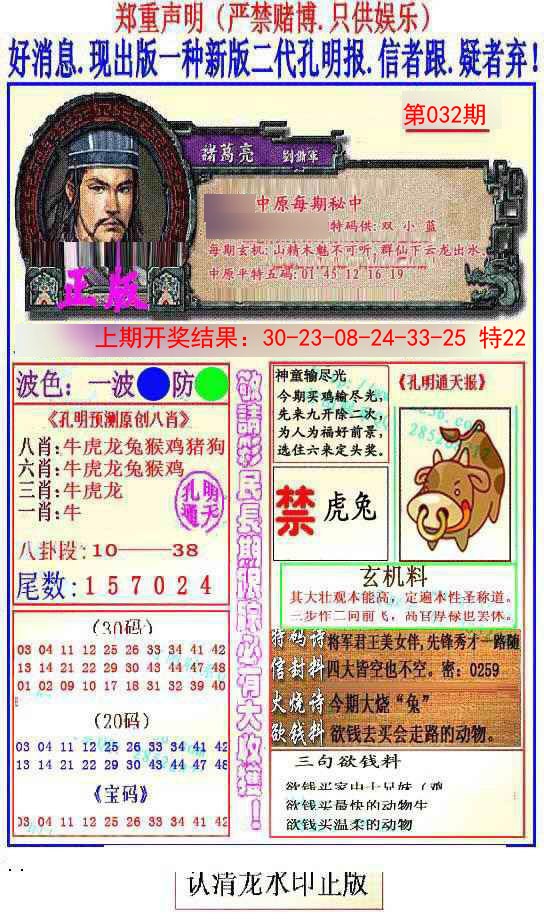 郑重声明（严禁赌博.只供娱乐）
好消息.现出版一种新版二代孔明报.信者跟.疑者弃!
第032期
諸葛亮
中原每期秘中
特码供:双 小 蓝
每期玄机:山精木魅不可听,群仙下云龙出水。
中原平特五码:01 45 12 16 19
正版
上期开奖结果：30-23-08-24-33-25 特22
波色：一波 防
《孔明预测原创八肖》
八肖:牛虎龙兔猴鸡猪狗
六肖:牛虎龙兔猴鸡
三肖:牛虎龙
一肖:牛
孔明
通天
八卦段:10——38
尾数:157024
敬請彩民長期跟踪必有大收獲！
神童输尽光
今期买鸡输尽光，
先来九开除二次，
为人为福好前景，
选住六来定头奖。
《孔明通天报》
禁 虎兔
玄机料
其大壮观本能高，定遍本性圣称道。
三步作二向前飞，高官厚禄也丢休。
特码诗 将军君王美女伴,先锋秀才一路随
信封料 四大皆空也不空。密：0259
火烧诗 今期大烧“兔”
欲钱料 欲钱去买会走路的动物。
(30码)
03 04 11 12 25 26 33 34 41 42
13 14 21 22 29 30 43 44 47 48
01 02 09 10 17 18 31 32 39 40
(20码)
03 04 11 12 25 26 33 34 41 42
13 14 21 22 29 30 43 44 47 48
《宝码》
03 04 11 12 25 26 33 34 41 42
三句欲钱料
欲钱买最快的动物牛
欲钱买温柔的动物
认清龙水印正版